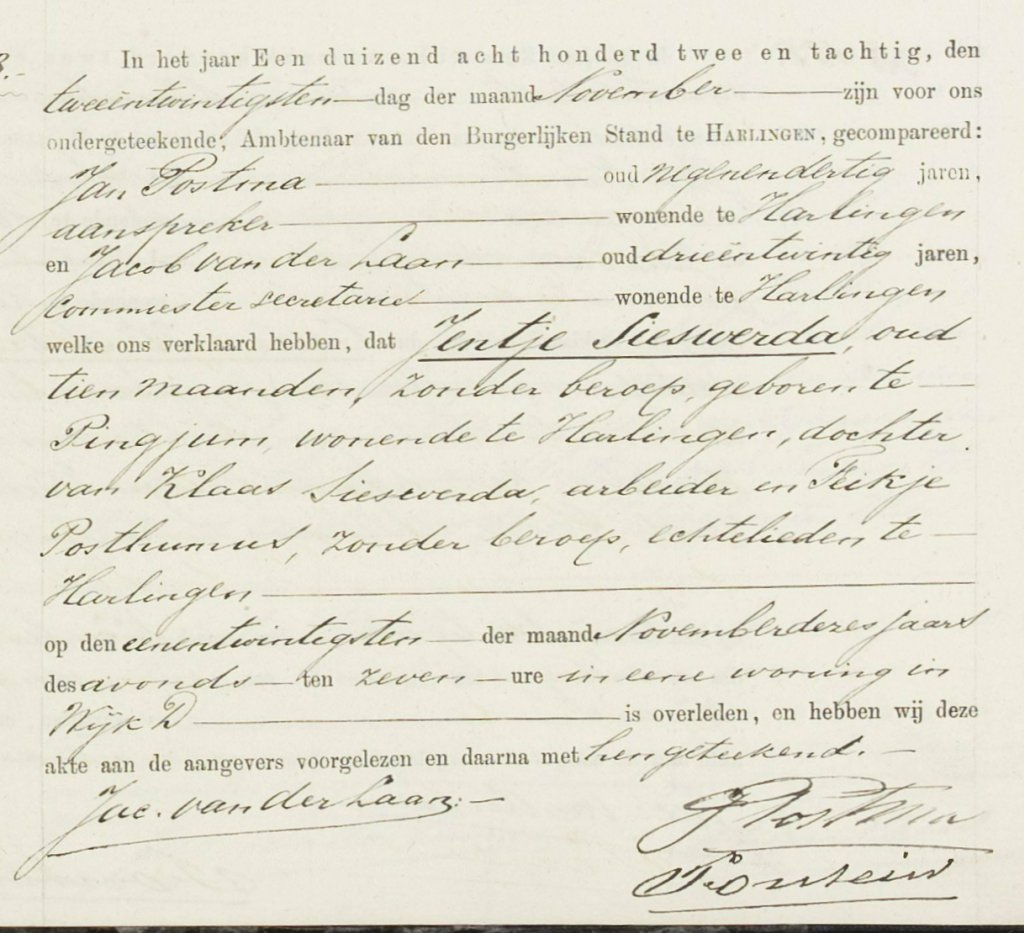 In het jaar Een duizend acht honderd twee en tachtig, den
tweeëntwintigsten dag der maand November zijn voor ons
ondergeteekende, Ambtenaar van den Burgerlijken Stand te HARLINGEN, gecompareerd:
Jan Postma oud negenendertig jaren,
aanspreker wonende te Harlingen
en Jacob van der Laan oud drieëntwintig jaren,
commies ter secretarie wonende te Harlingen
welke ons verklaard hebben, dat Jentje Sieswerda, oud
tien maanden, zonder beroep, geboren te
Pingjum, wonende te Harlingen, dochter
van Klaas Sieswerda, arbeider en Feikje
Posthumus, zonder beroep, echtelieden te
Harlingen
op den eenentwintigsten der maand November dezes jaars
des avonds ten zeven ure in eene woning in
Wijk D is overleden, en hebben wij deze
akte aan de aangevers voorgelezen en daarna met hen geteekend.
Jac. van der Laan.
J Postma
Fontein